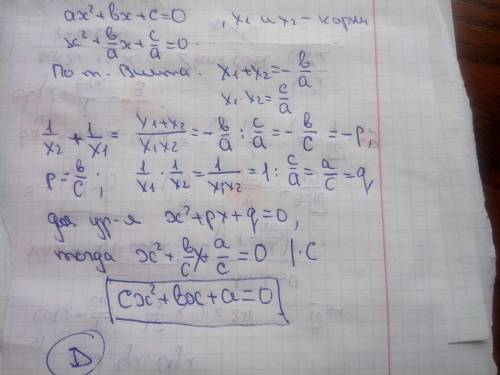 ax²+bx+c=0 , x₁ и x₂ – корни
x²+b/a x+c/a=0.
По т. Виета. x₁+x₂=-b/a
x₁·x₂=c/a
1/x₂+1/x₁=(x₁+x₂)/(x₁x₂)=-b/a:c/a=-b/c=-p,
p=b/c; 1/x₁·1/x₂=1/(x₁x₂)=1:c/a=a/c=q
для ур-я x²+px+q=0,
тогда x²+b/c x+a/c=0 |·c
cx²+bx+a=0
D